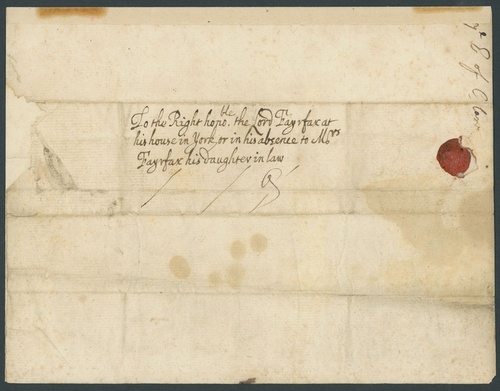 To the Right hono^ble. the Lord Fayrfax at
his house in York, or in his absence to M^rs
Fayrfax his daughter in law
y^e 8 of